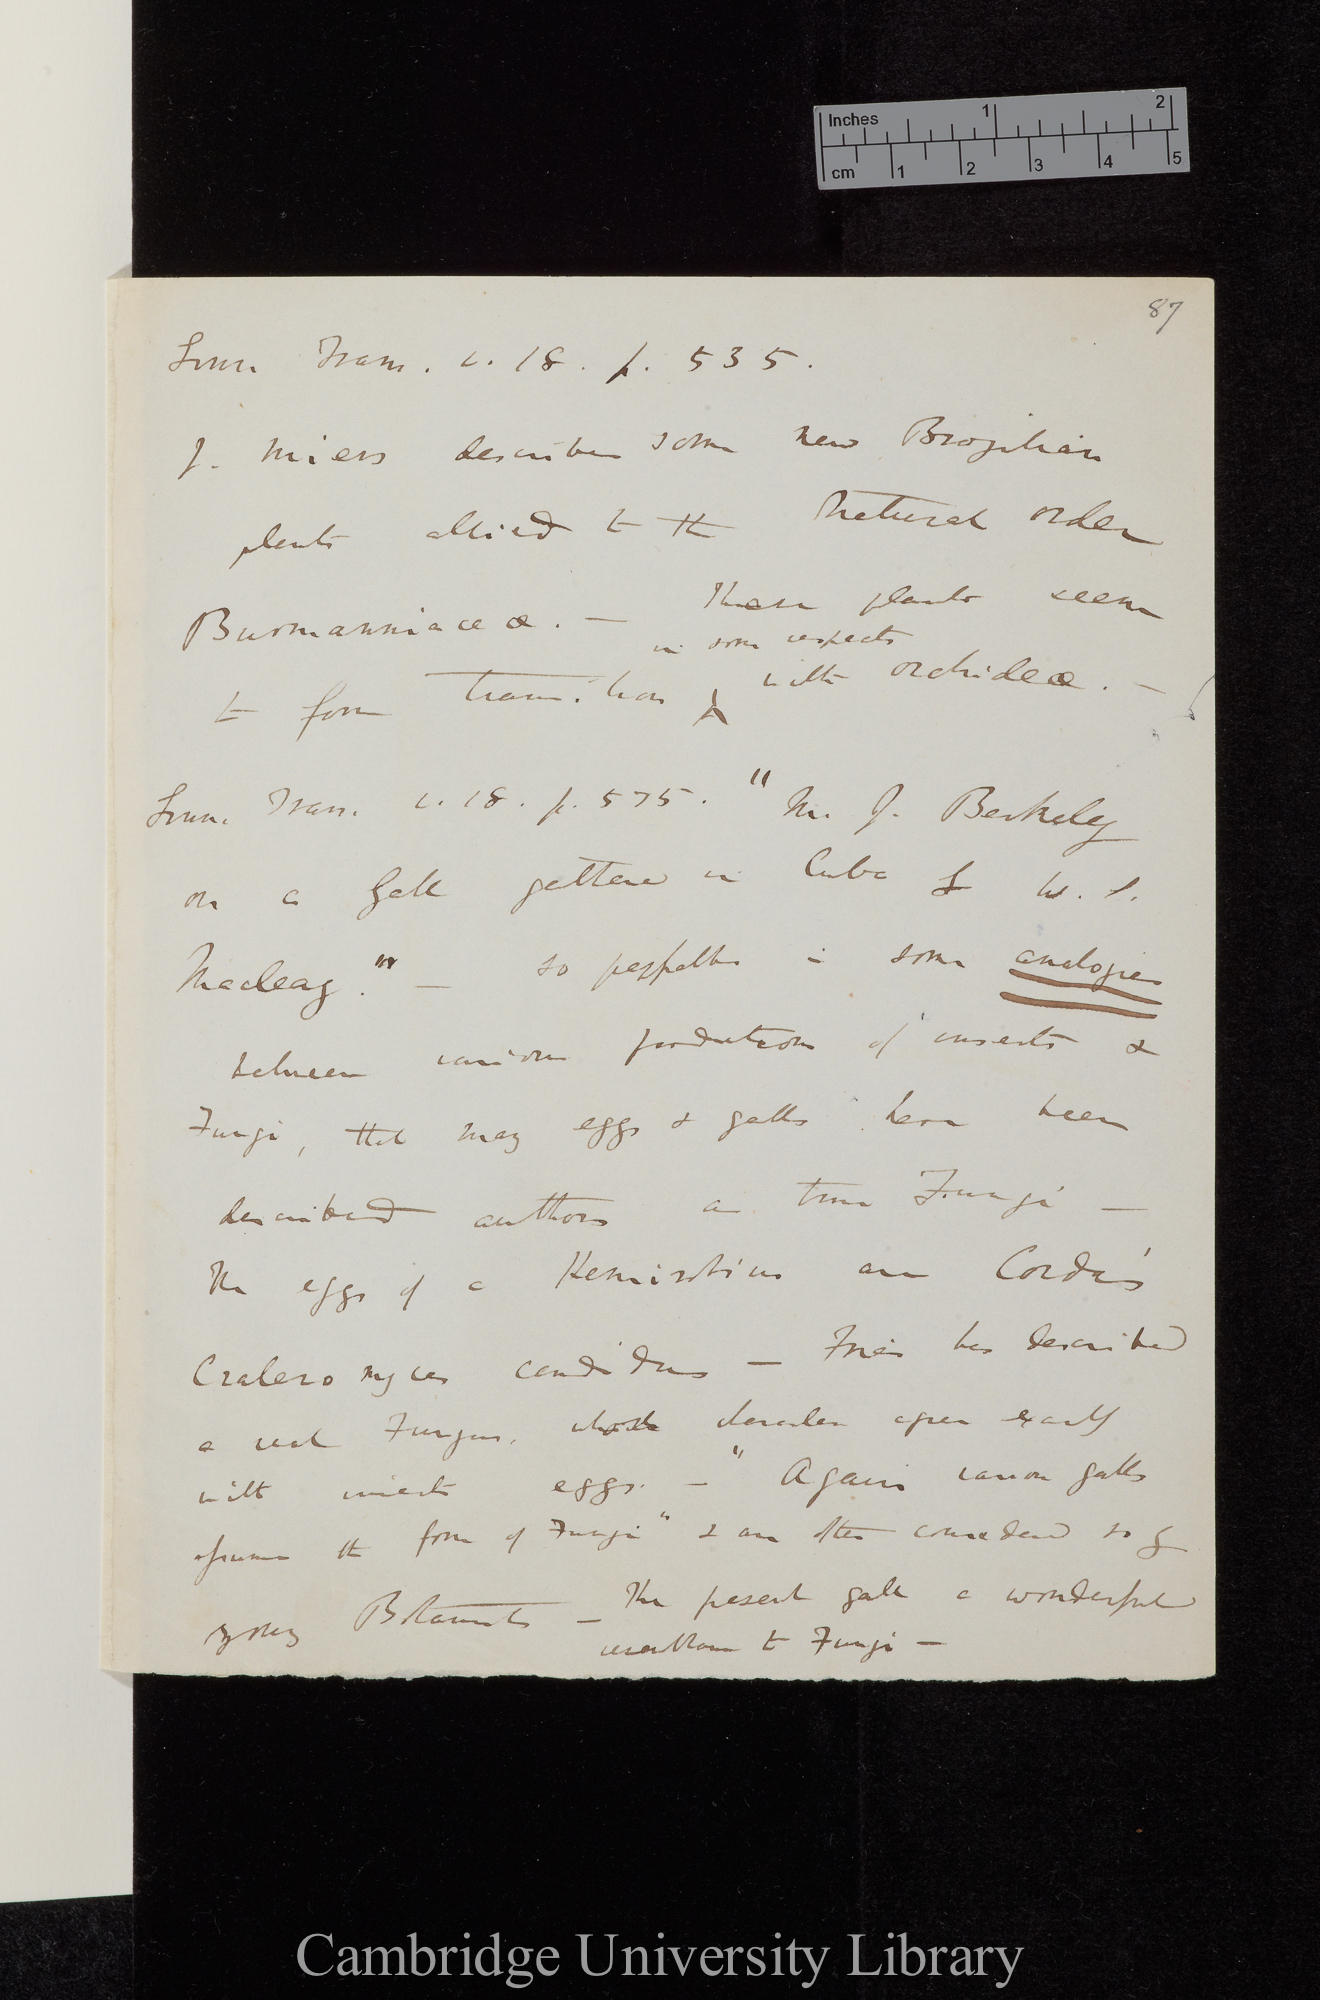 Inches 1 2
cm 1 2 3 4 5
87
Linn. Trans. v. 18. p. 535.
J. Miers describes some new Brazilian
plants allied to the Natural order
Burmanniaceæ. — These plants seem
in some respects
to form transition with orchideæ. —
Linn. Trans. v. 18. p. 575. "M. J. Berkeley
on a Gall gathered in Cuba by W. S.
Macleay." — so perfect is some analogies
between various productions of insects &
Fungi, that many eggs & galls have been
described authors as true Fungi —
The eggs of a Hemirobius are Corda's
Crateromyces candidus — Fries has described
a real Fungus, whose character agree exactly
with insects eggs. — "Again various galls
assume the form of Fungi" & are often considered so by
young Botanists — The present gall a wonderful
resemblance to Fungi —
Cambridge University Library